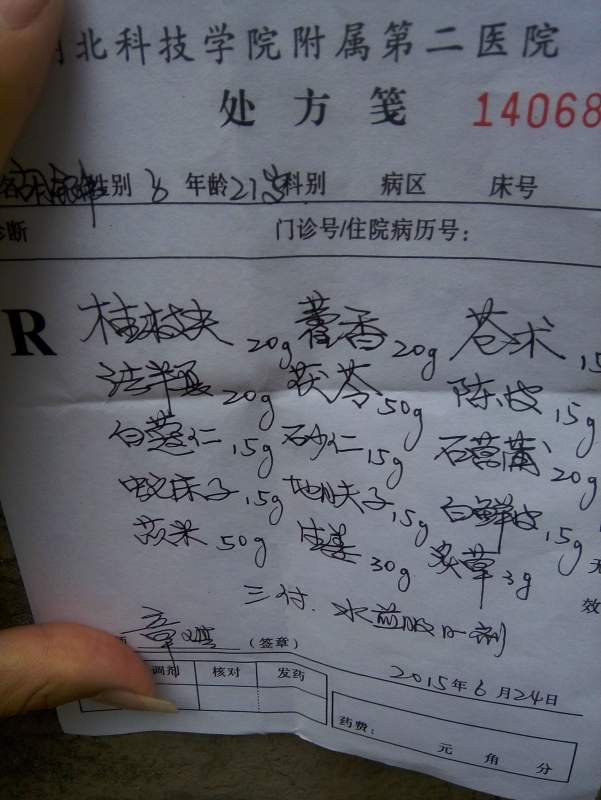 北科技学院附属第二医院
处方笺 14068
性别 年龄 21岁 科别 病区 床号
诊断 门诊号/住院病历号：
R 桂枝尖 20g 藿香 20g 苍术 15
法半夏 20g 茯苓 50g 陈皮 15g
白蔻仁 15g 石少仁 15g 石菖蒲 20g
蛇床子 15g 地肤子 15g 白鲜皮 15g
苡米 50g 生姜 30g 炙草 3g
三付. 水煎服
效
章 （签章）
调剂 核对 发药
2015年6月24日
药费： 元 角 分